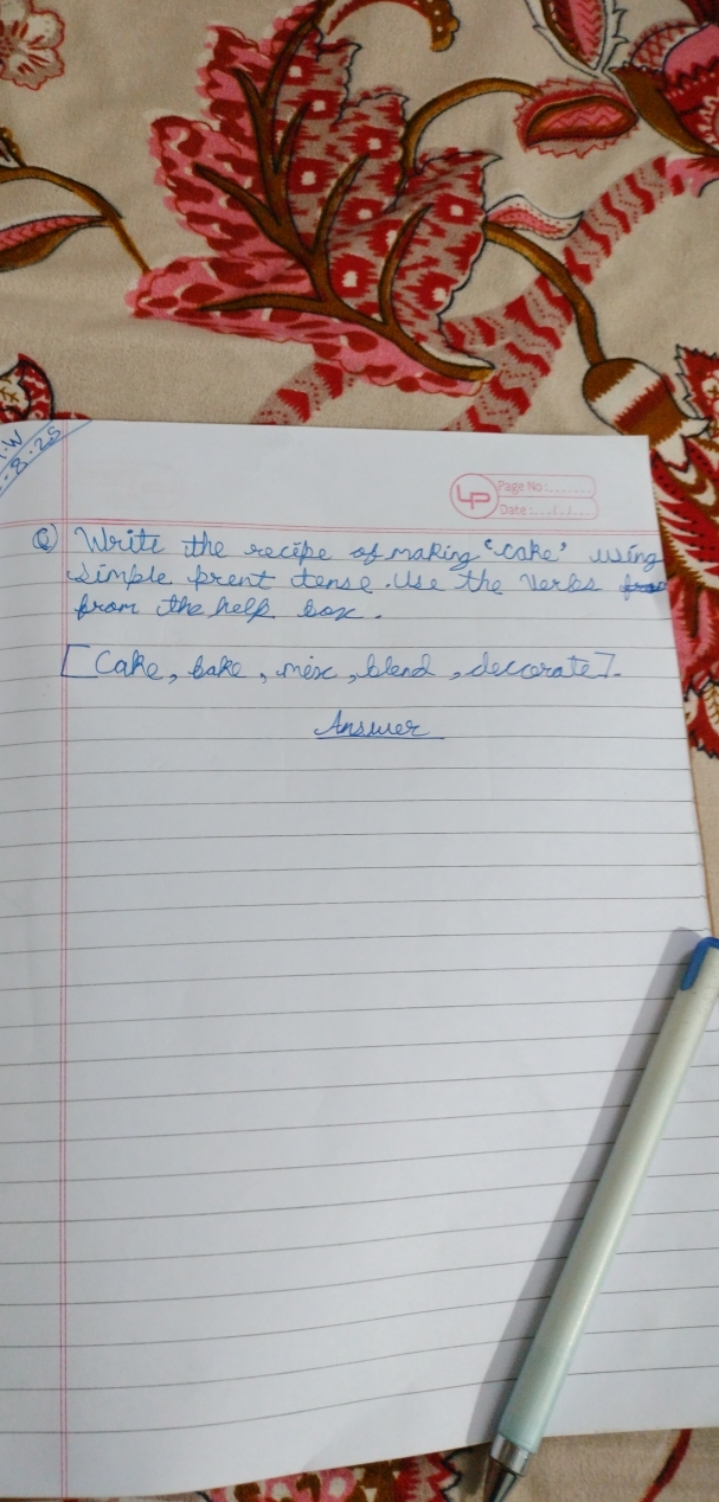 .W
-8.25
LP
Page No:.......
Date:.../.../...
Q) Write the recipe of making 'cake' using
simple prent tense. Use the verbs
from the help box.
[Cake, bake, mix, blend, deccorate].
Answer